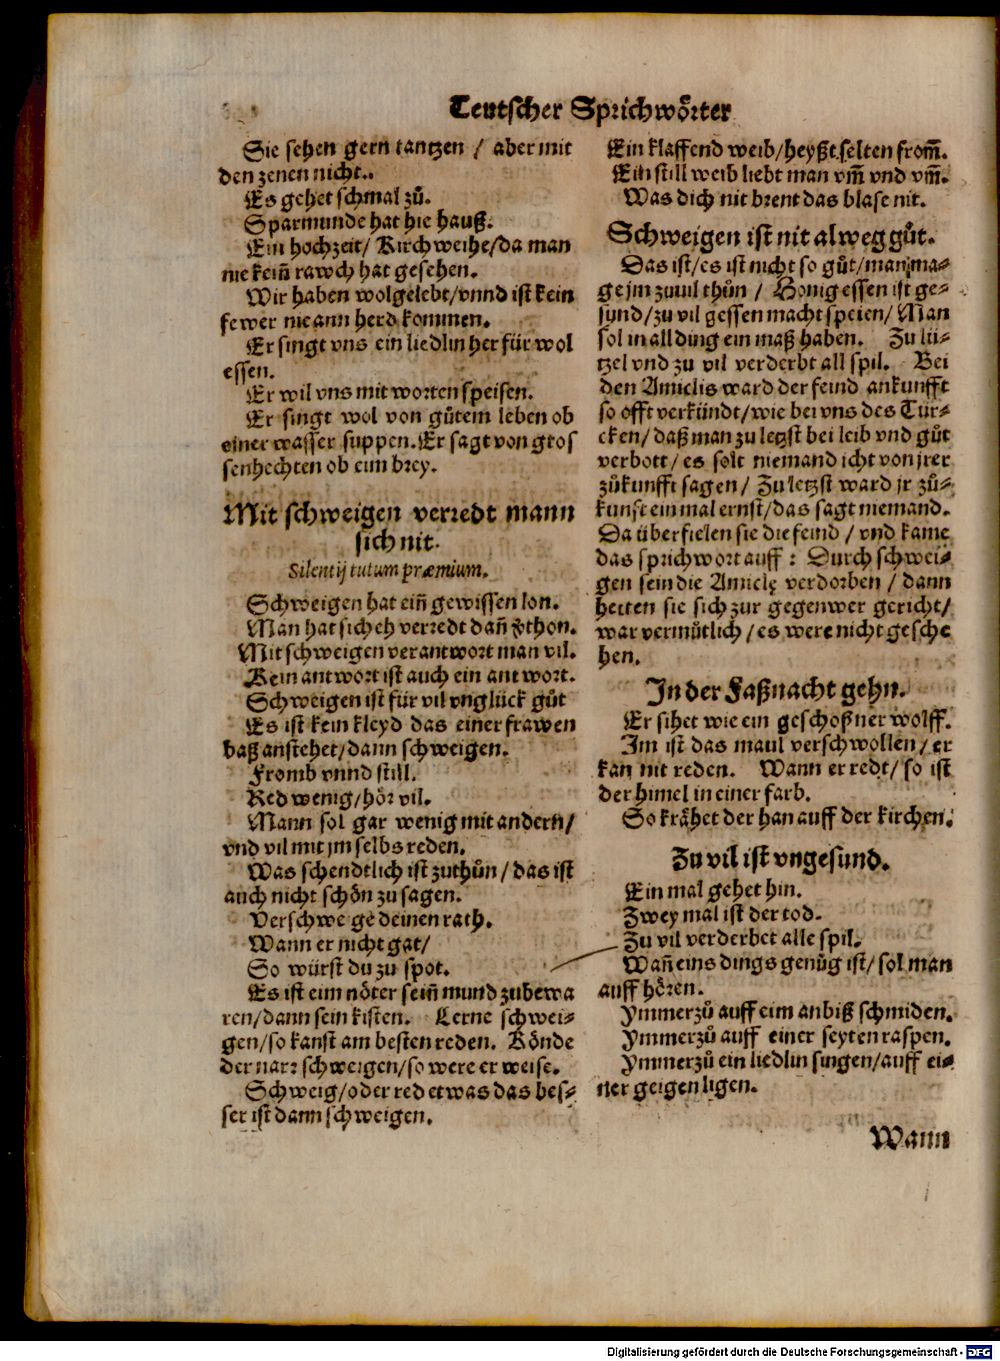 Teutscher Sprichwoͤrter
Sie sehen gern tantzen / aber mit
den zenen nicht..
Es gehet schmal zuͦ.
Sparmunde hat hie hauß.
Ein hochzeit/ Kirchweihe/da man
nie keiñ rawch hat gesehen.
Wir haben wolgelebt/vnnd ist kein
fewer nie ann herd kommen.
Er singt vns ein liedlin her für wol
essen.
Er wil vns mit worten speisen.
Er singt wol von guͦtem leben ob
einer wasser suppen. Er sagt von gros
senhechten ob eim brey.
Mit schweigen verredt mann
sich nit.
Silentij tutum præmium.
Schweigen hat eiñ gewissen lon.
Man hat sich eh verredt dañ v̈thon.
Mit schweigen verantwort man vil.
Kein antwort ist auch ein antwort.
Schweigen ist für vil vnglück guͦt
Es ist kein kleyd das einer frawen
baß anstehet/dann schweigen.
Fromb vnnd still.
Red wenig/hoͤr vil.
Mann sol gar wenig mit andern/
vnd vil mit jm selbs reden.
Was schendtlich ist zuthuͦn / das ist
auch nicht schoͤn zu sagen.
Verschweige deinen rath.
Wann er nicht gat/
So würst du zu spot.
Es ist eim noͤter seiñ mund zubewa
ren/dann sein kisten. Lerne schwei-
gen/so kanst am besten reden. Koͤnde
der narr schweigen/so were er weise.
Schweig/oder red etwas das bes-
ser ist dann schweigen.
Ein klaffend weib/heyßt selten from̃.
Ein still weib liebt man vm̃ vnd vm̃.
Was dich nit brent das blase nit.
Schweigen ist nit alweg guͦt.
Das ist/es ist nicht so guͦt/man ma-
ge jm zuuil thuͦn / Honig essen ist ge-
sund/zu vil gessen macht speien/ Man
sol in all ding ein maß haben. Zu lü-
tzel vnd zu vil verderbt all spil. Bei
den Amiclis ward der feind ankunfft
so offt verkündt/wie bei vns des Tür-
cken/daß man zu letzst bei leib vnd guͦt
verbott/es solt niemand icht von jrer
zuͦkunfft sagen/ Zu letzst ward jr zuͦ-
kunft ein mal ernst/das sagt niemand.
Da überfielen sie die feind / vnd kame
das sprichwort auff: Durch schwei-
gen sein die Amiclę verdorben / dann
hetten sie sich zur gegenwer gericht/
war vermuͦtlich/es were nicht gesche
hen.
In der Faßnacht gehn.
Er sihet wie ein geschoßner wolff.
Im ist das maul verschwollen/er
kan nit reden. Wann er redt/so ist
der himel in einer farb.
So kraͤhet der han auff der kirchen.
Zu vil ist vngesund.
Ein mal gehet hin.
Zwey mal ist der tod.
Zu vil verderbet alle spil.
Wañ eins dings genuͦg ist/sol man
auff hoͤren.
Ymmerzuͦ auff eim anbiß schmiden.
Ymmerzuͦ auff einer seyten raspen.
Ymmerzuͦ ein liedlin singen/auff ei-
ner geigen ligen.
Wann
Digitalisierung gefördert durch die Deutsche Forschungsgemeinschaft - DFG